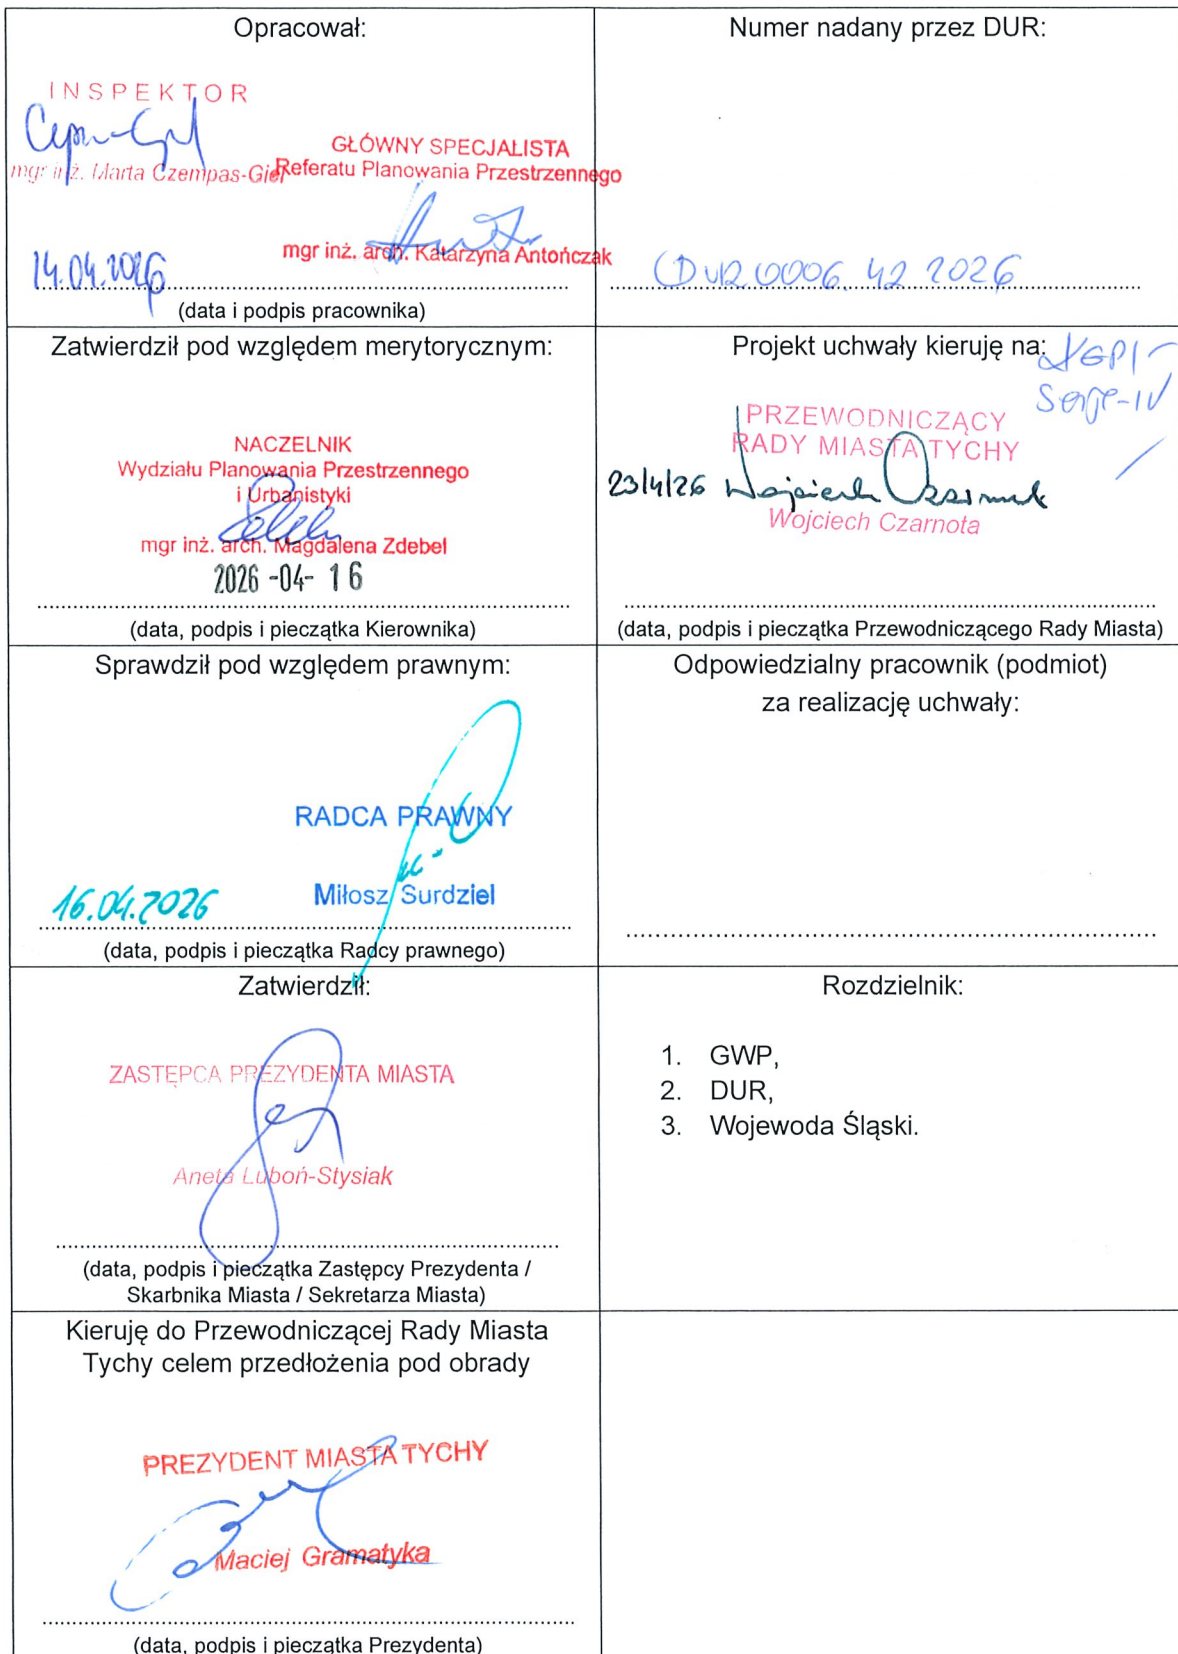 Opracował:
INSPEKTOR
mgr inż. Marta Czempas-Giel
GŁÓWNY SPECJALISTA
Referatu Planowania Przestrzennego
mgr inż. arch. Katarzyna Antończak
14.04.2026
(data i podpis pracownika)
Numer nadany przez DUR:
DUR.0006.42.2026
Zatwierdził pod względem merytorycznym:
NACZELNIK
Wydziału Planowania Przestrzennego
i Urbanistyki
mgr inż. arch. Magdalena Zdebel
2026 -04- 16
(data, podpis i pieczątka Kierownika)
Projekt uchwały kieruję na:
PRZEWODNICZĄCY
RADY MIASTA TYCHY
23/4/26 Wojciech Czarnota
Wojciech Czarnota
(data, podpis i pieczątka Przewodniczącego Rady Miasta)
Sprawdził pod względem prawnym:
RADCA PRAWNY
Miłosz Surdziel
16.04.2026
(data, podpis i pieczątka Radcy prawnego)
Odpowiedzialny pracownik (podmiot)
za realizację uchwały:
Zatwierdził:
ZASTĘPCA PREZYDENTA MIASTA
Aneta Luboń-Stysiak
(data, podpis i pieczątka Zastępcy Prezydenta /
Skarbnika Miasta / Sekretarza Miasta)
Rozdzielnik:
1. GWP,
2. DUR,
3. Wojewoda Śląski.
Kieruję do Przewodniczącej Rady Miasta
Tychy celem przedłożenia pod obrady
PREZYDENT MIASTA TYCHY
Maciej Gramatyka
(data, podpis i pieczątka Prezydenta)